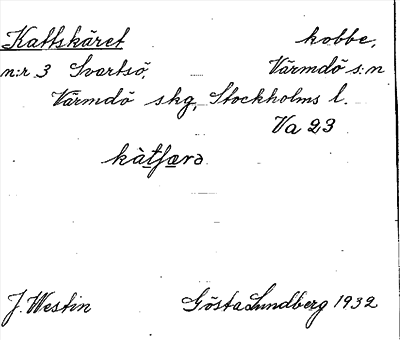 Kattskäret kobbe,
n:r 3 Svartsö, Värmdö s:n
Värmdö skg, Stockholms l.
Va 23
kàtfærə
J. Westin Gösta Lundberg 1932